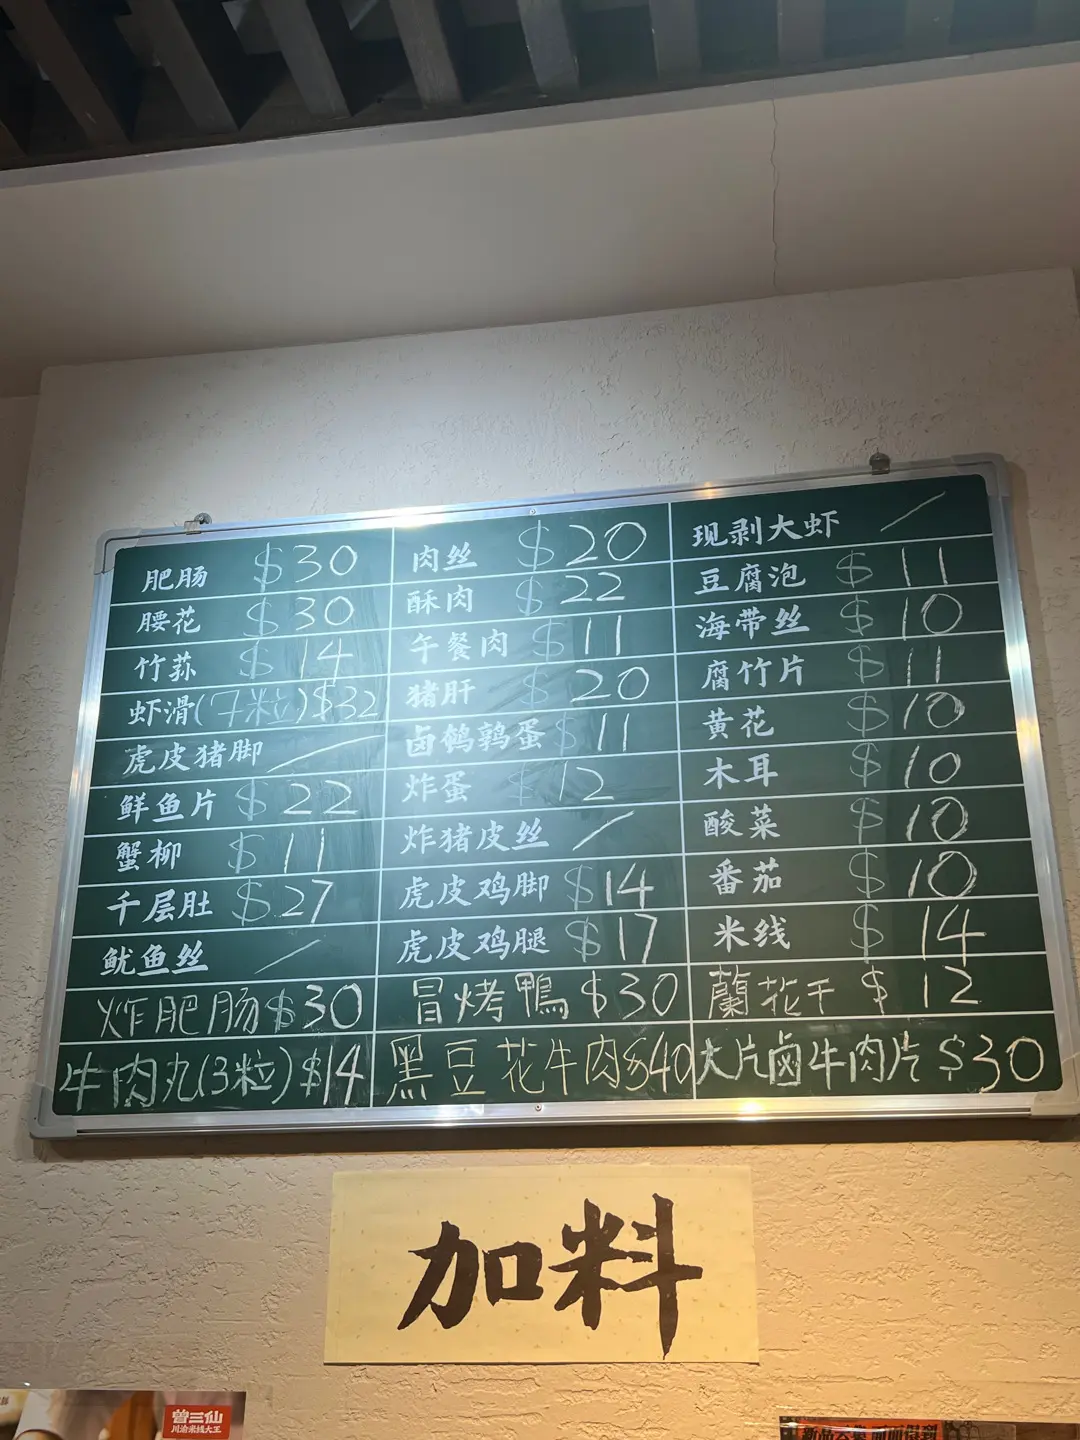 肥肠 $30 肉丝 $20 现剥大虾 /
腰花 $30 酥肉 $22 豆腐泡 $11
竹荪 $14 午餐肉 $11 海带丝 $10
虾滑(7粒)$32 猪肝 $20 腐竹片 $11
虎皮猪脚 / 卤鹌鹑蛋 $11 黄花 $10
鲜鱼片 $22 炸蛋 $12 木耳 $10
蟹柳 $11 炸猪皮丝 / 酸菜 $10
千层肚 $27 虎皮鸡脚 $14 番茄 $10
鱿鱼丝 / 虎皮鸡腿 $17 米线 $14
炸肥肠$30 冒烤鴨$30 蘭花干 $12
牛肉丸(3粒)$14 黑豆花牛肉$40 大片鹵牛肉片 $30
加料
曾三仙
川渝米线大王